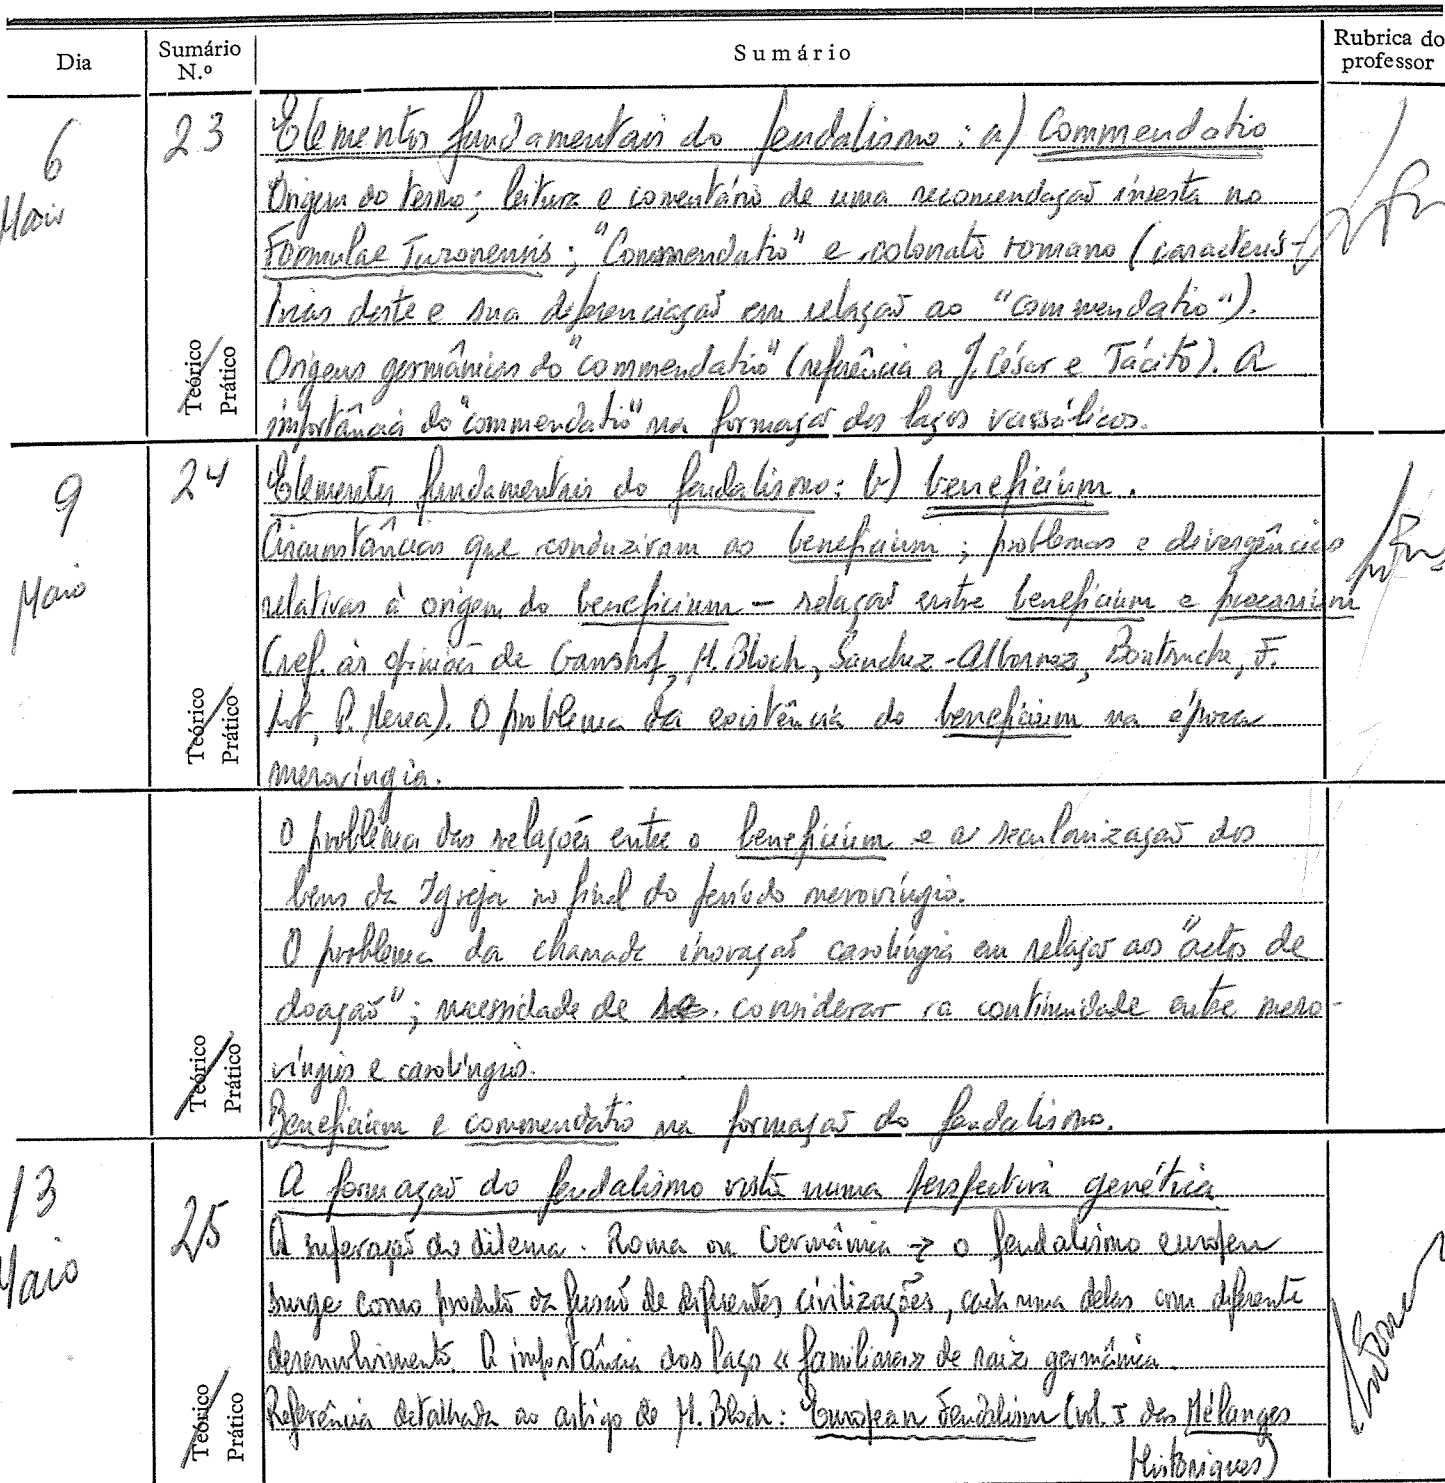 Dia Sumário N.º Sumário Rubrica do professor
6 Maio 23 Elementos fundamentais do feudalismo: a) Commendatio
Origem do termo; leitura e comentário de uma recomendação inserta no
Formulae Turonensis; "Commendatio" e colonato romano (caracterís-
ticas deste e sua diferenciação em relação ao "commendatio").
Origens germânicas do "commendatio" (referência a J. César e Tácito). A
importância do "commendatio" na formação dos laços vassálicos.
Teórico Prático
9 Maio 24 Elementos fundamentais do feudalismo: b) beneficium.
Circunstâncias que conduziram ao beneficium; problemas e divergências
relativas à origem do beneficium – relação entre beneficium e precarium
(ref. às opiniões de Ganshof, M. Bloch, Sánchez-Albornoz, Boutruche, F.
Lot, P. Merea). O problema da existência do beneficium na época
merovíngia.
Teórico Prático
O problema das relações entre o beneficium e a secularização dos
bens da Igreja no final do período merovíngio.
O problema da chamada inovação carolíngia em relação aos "actos de
doação"; necessidade de considerar a continuidade entre mero-
víngios e carolíngios.
Beneficium e commendatio na formação do feudalismo.
Teórico Prático
13 Maio 25 A formação do feudalismo vista numa perspectiva genética
A superação do dilema. Roma ou Germânia → o feudalismo europeu
surge como produto da fusão de diferentes civilizações, cada uma delas com diferente
desenvolvimento. A importância dos laços «familiares» de raiz germânica.
Referência detalhada ao artigo de M. Bloch: European Feudalism (vol. I das Mélanges
Historiques)
Teórico Prático